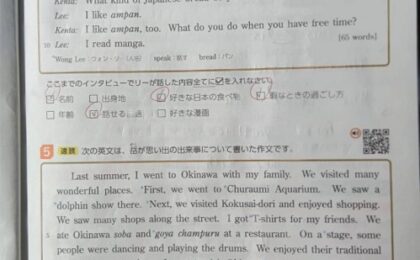 Kenta: What kind of Japanese bread do you
Lee: I like ampan.
Kenta: I like ampan, too. What do you do when you have free time?
10 Lee: I read manga. [65 words]
Wong Lee ウォン・リー(人名) speak:話す bread:パン
ここまでのインタビューでリーが話した内容全てに✓を入れなさい。
名前 出身地 好きな日本の食べ物 暇なときの過ごし方
年齢 話せる 好きな漫画
5 速読 次の英文は,岳が思い出の出来事について書いた作文です。
Last summer, I went to Okinawa with my family. We visited many
wonderful places. *First, we went to *Churaumi Aquarium. We saw a
*dolphin show there. *Next, we visited Kokusai-dori and enjoyed shopping.
We saw many shops along the street. I got *T-shirts for my friends. We
5 ate Okinawa soba and *goya champuru at a restaurant. On a *stage, some
people were dancing and playing the drums. We enjoyed their traditional